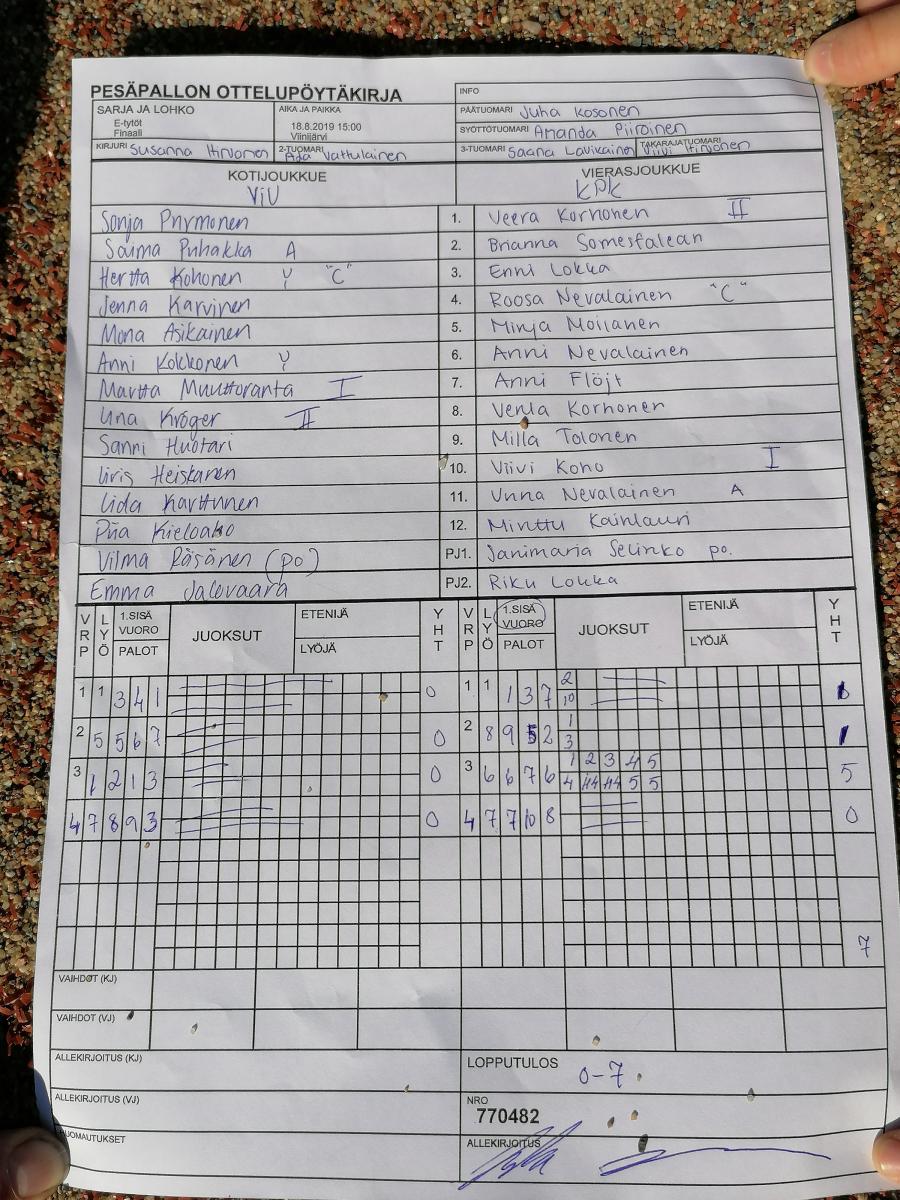 PESÄPALLON OTTELUPÖYTÄKIRJA
INFO
SARJA JA LOHKO
E-tytöt
Finaali
AIKA JA PAIKKA
18.8.2019 15:00
Viinijärvi
PÄÄTUOMARI Juha Kosonen
SYÖTTÖTUOMARI Amanda Piiroinen
KIRJURI Susanna Hirvonen
2-TUOMARI Ada Vattulainen
3-TUOMARI Saana Lavikainen
TAKARAJATUOMARI Viivi Hirvonen
KOTIJOUKKUE
ViU
VIERASJOUKKUE
KPK
Sonja Pnymonen 1. Veera Korhonen II
Saima Puhakka A 2. Brianna Somesfalean
Hertta Kohonen Y "C" 3. Enni Lokka
Jenna Karvinen 4. Roosa Nevalainen "C"
Mona Asikainen 5. Minja Moilanen
Anni Kokkonen Y 6. Anni Nevalainen
Martta Muuttoranta I 7. Anni Flöjt
Una Kröger II 8. Venla Korhonen
Sanni Huotari 9. Milla Tolonen
Iiris Heiskanen 10. Viivi Koho I
Iida Karttunen 11. Unna Nevalainen A
Piia 12. Minttu Kainlauri
Vilma Räsänen (po) PJ1. Janimaria Selinko po.
Emma Jalovaara PJ2. Riku Lokka
VRP LYÖ 1.SISÄ VUORO PALOT JUOKSUT ETENIJÄ LYÖJÄ YHT VRP LYÖ 1.SISÄ VUORO PALOT JUOKSUT ETENIJÄ LYÖJÄ YHT
1 1 3 4 1 0 1 1 1 3 7 2 10
2 5 5 6 7 0 2 8 9 5 2 1 3 1
3 1 2 1 3 0 3 6 6 7 6 1 2 3 4 5 5
4 44 44 5 5
4 7 8 9 3 0 4 7 7 10 8 0
7
VAIHDOT (KJ)
VAIHDOT (VJ)
ALLEKIRJOITUS (KJ)
LOPPUTULOS 0-7
ALLEKIRJOITUS (VJ)
NRO
770482
HUOMAUTUKSET
ALLEKIRJOITUS